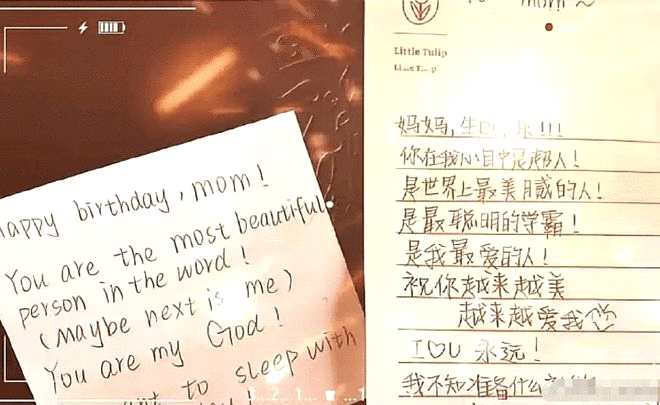 Happy birthday, mom!
You are the most beautiful
person in the word!
(Maybe next is me)
You are my God!
to sleep with
To mom~
Little Tulip
妈妈,生日快乐!!!
你在我心目中是超人!
是世界上最美月感的人!
是最聪明的学霸!
是我最爱的人!
祝你越来越美
越来越爱我
I♡U 永远!
我不知准备什么